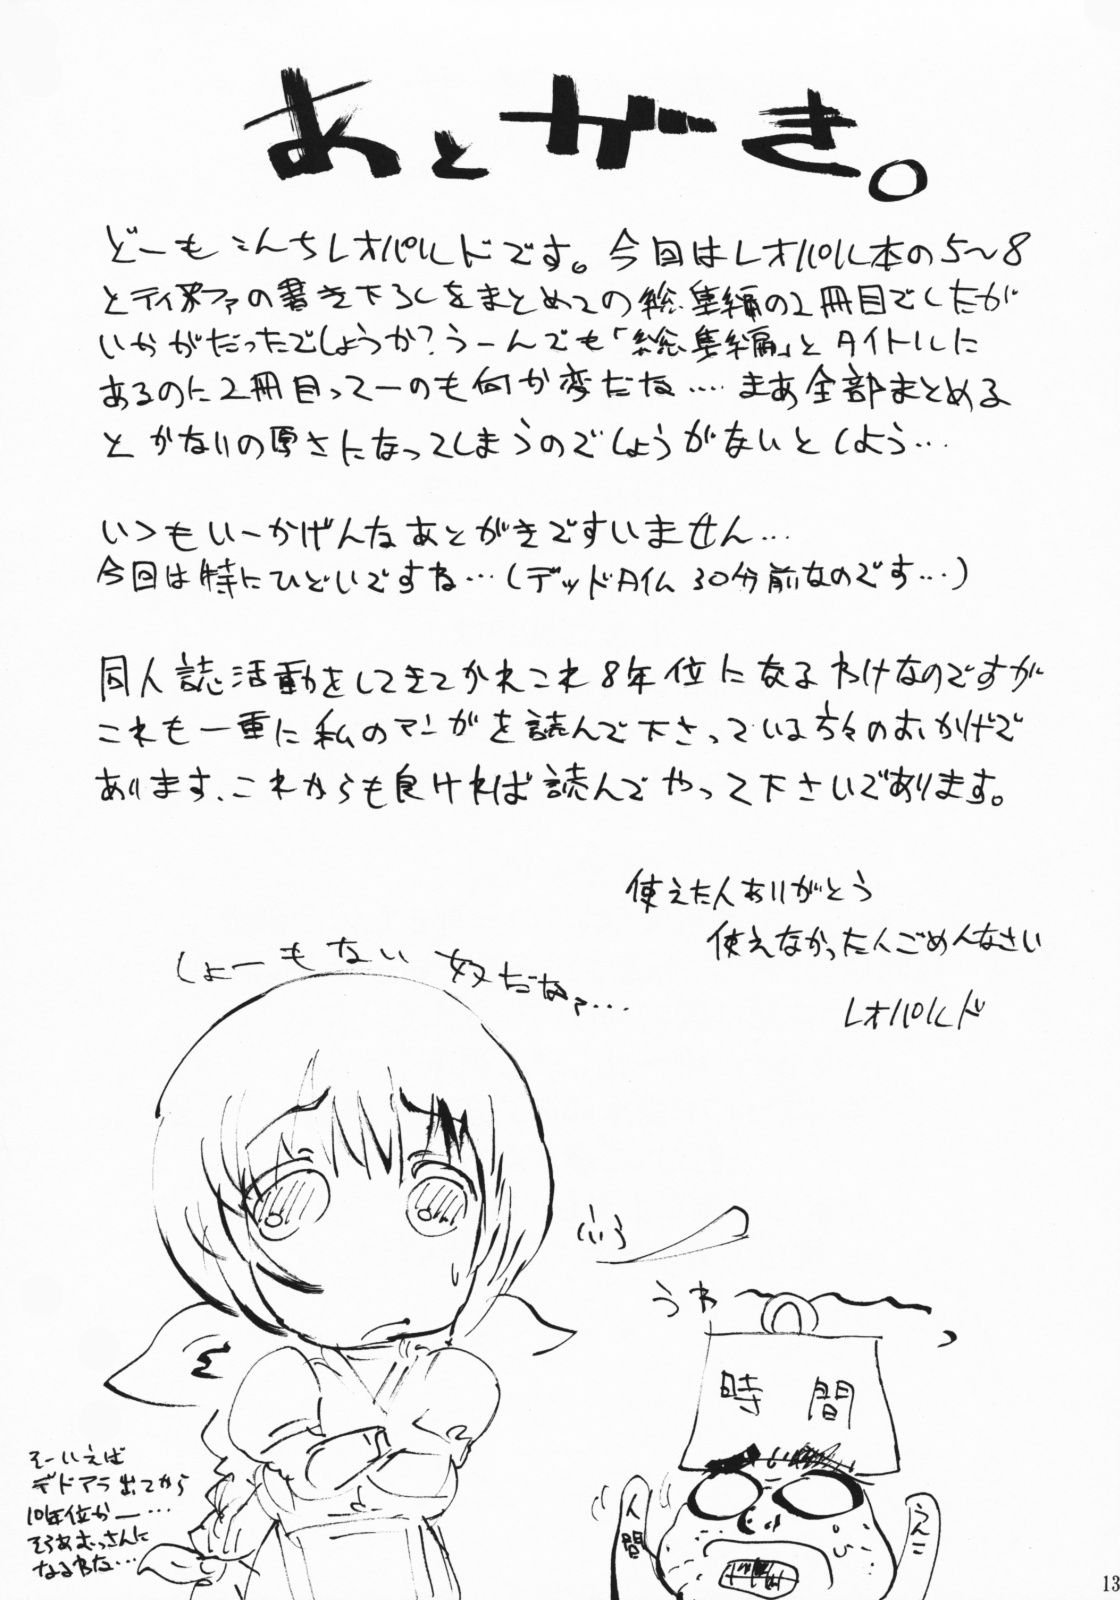 あとがき。
どーもこんちレオパルドです。今回はレオパル本の5〜8
とティファの書き下ろしをまとめての総集編の2冊目でしたが
いかがだったでしょうか?うーんでも「総集編」とタイトルに
あるのに2冊目ってーのも何か変だな…. まあ全部まとめる
とかなりの厚さになってしまうのでしょうがないとしよう…
いつもいーかげんなあとがきですいません…
今回は特にひどいですね…(デッドタイム30分前なのです…)
同人誌活動をしてきてかれこれ8年位になるわけなのですが
これも一重に私のマンガを読んで下さっている方々のおかげで
あります、これからも良ければ読んでやって下さいであります。
使えた人ありがとう
使えなかった人ごめんなさい
レオパルド
しょーもない奴だなァ…
ふぅ
うわ
時間
人間
そーいえば
デドアラ出てから
10年位かー…
そろあむっさんに
なるわな…
13